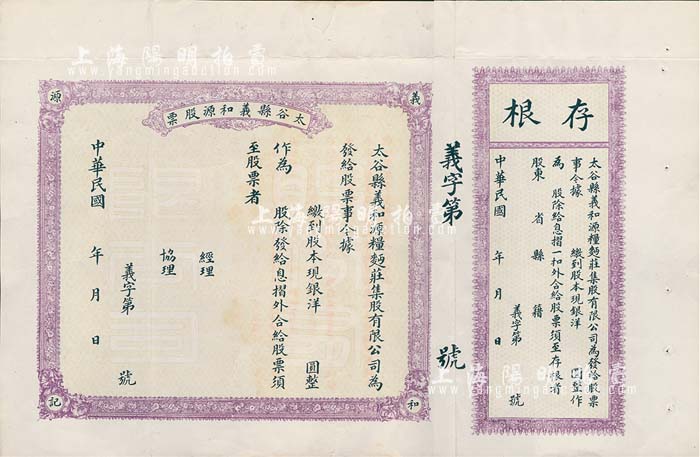 存根
太谷縣義和源糧麵莊集股有限公司為發給股票
事今據 繳到股本現銀洋 圓整作
為 股除給息摺一扣外合給股票須至存根者
股東 省 縣 籍
義字第 號
中華民國 年 月 日
義字第 號
義
和
源
記
太谷縣義和源股票
太谷縣義和源糧麵莊集股有限公司為
發給股票事今據
繳到股本現銀洋 圓整
作為 股除發給息摺外合給股票須
至股票者
經理
協理
義字第 號
中華民國 年 月 日
上海陽明拍賣
www.yangmingauction.com
上海陽明拍賣
www.yangmingauction.com